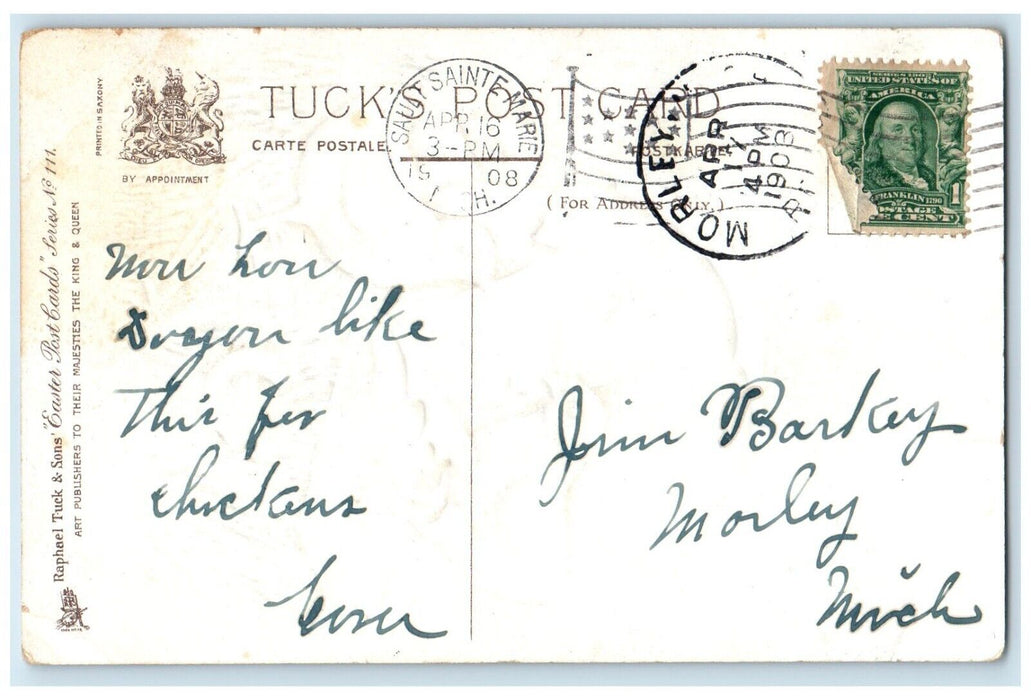 TUCK'S POST CARD
CARTE POSTALE
POSTKARTE
(FOR ADDRESS ONLY.)
BY APPOINTMENT
PRINTED IN SAXONY
Raphael Tuck & Sons' "Easter Post Cards" Series Nº 111.
ART PUBLISHERS TO THEIR MAJESTIES THE KING & QUEEN
SAULT SAINTE MARIE
APR 16
3-PM
1908
MICH.
MORLEY
APR
17
4PM
1908
SERIES 1902
UNITED STATES OF
AMERICA
FRANKLIN
POSTAGE
1
CENT
Now how
Do you like
This for
chickens
Jim Barkey
Morley
Mich